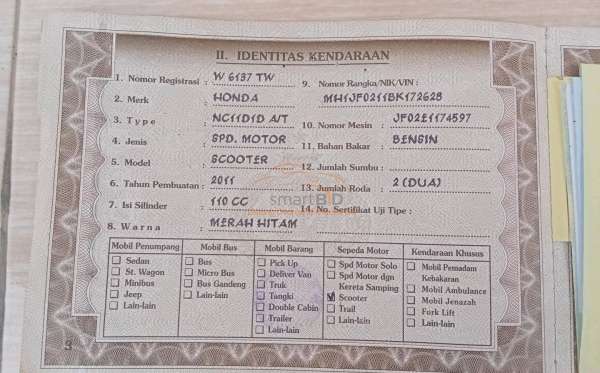 II. IDENTITAS KENDARAAN
1. Nomor Registrasi : W 6137 TW
2. Merk : HONDA
3. Type : NC11D1D A/T
4. Jenis : SPD. MOTOR
5. Model : SCOOTER
6. Tahun Pembuatan : 2011
7. Isi Silinder : 110 CC
8. Warna : MERAH HITAM
9. Nomor Rangka/NIK/VIN :
MH1JF0211BK172628
10. Nomor Mesin : JF02E1174597
11. Bahan Bakar : BENSIN
12. Jumlah Sumbu :
13. Jumlah Roda : 2 (DUA)
14. No. Sertifikat Uji Tipe :
smartBID
Mobil Penumpang
Sedan
St. Wagon
Minibus
Jeep
Lain-lain
Mobil Bus
Bus
Micro Bus
Bus Gandeng
Lain-lain
Mobil Barang
Pick Up
Deliver Van
Truk
Tangki
Double Cabin
Trailer
Lain-lain
Sepeda Motor
Spd Motor Solo
Spd Motor dgn
Kereta Samping
Scooter
Trail
Lain-lain
Kendaraan Khusus
Mobil Pemadam
Kebakaran
Mobil Ambulance
Mobil Jenazah
Fork Lift
Lain-lain